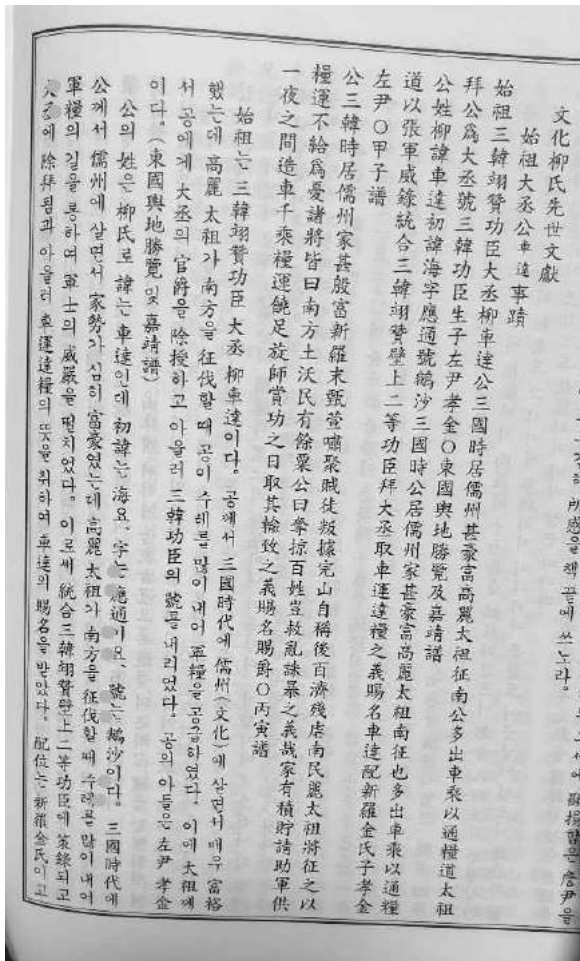 所感을 책 끝에 쓰노라.
文化柳氏先世文獻
始祖大丞公車達事蹟
始祖三韓翊贊功臣大丞柳車達公三國時居儒州甚豪富高麗太祖征南公多出車乘以通糧道太祖
拜公爲大丞號三韓功臣生子左尹孝金○東國輿地勝覽及嘉靖譜
公姓柳諱車達初諱海字應通號鵝沙三國時公居儒州家甚豪富高麗太祖南征也多出車乘以通糧
道以張軍威錄統合三韓翊贊壁上二等功臣拜大丞取車運達糧之義賜名車達配新羅金氏子孝金
左尹○甲子譜
公三韓時居儒州家甚殷富新羅末甄萱嘯聚賊徒叛據完山自稱後百濟殘虐南民麗太祖將征之以
糧運不給爲憂諸將皆曰南方土沃民有餘粟公曰奪掠百姓豈救亂誅暴之義哉家有積貯請助軍供
一夜之間造車千乘糧運饒足旋師賞功之日取其輸致之義賜名賜爵○丙寅譜
始祖는 三韓翊贊功臣 大丞 柳車達이다. 공께서 三國時代에 儒州(文化)에 살면서 매우 富裕
했는데 高麗 太祖가 南方을 征伐할 때 공이 수레를 많이 내어 軍糧을 공급하였다. 이에 太祖께
서 공에게 大丞의 官爵을 除授하고 아울러 三韓功臣의 號를 내리었다. 公의 아들은 左尹 孝金
이다. (東國輿地勝覽 및 嘉靖譜)
公의 姓은 柳氏로 諱는 車達인데 初諱는 海요, 字는 應通이요, 號는 鵝沙이다. 三國時代에
公께서 儒州에 살면서 家勢가 심히 富豪였는데 高麗 太祖가 南方을 征伐할 때 수레를 많이 내어
軍糧의 길을 통하여 軍士의 威嚴을 떨치었다. 이로써 統合三韓翊贊壁上二等功臣에 策錄되고
大丞에 除拜됨과 아울러 車運達糧의 뜻을 취하여 車達의 賜名을 받았다. 配位는 新羅金氏이고